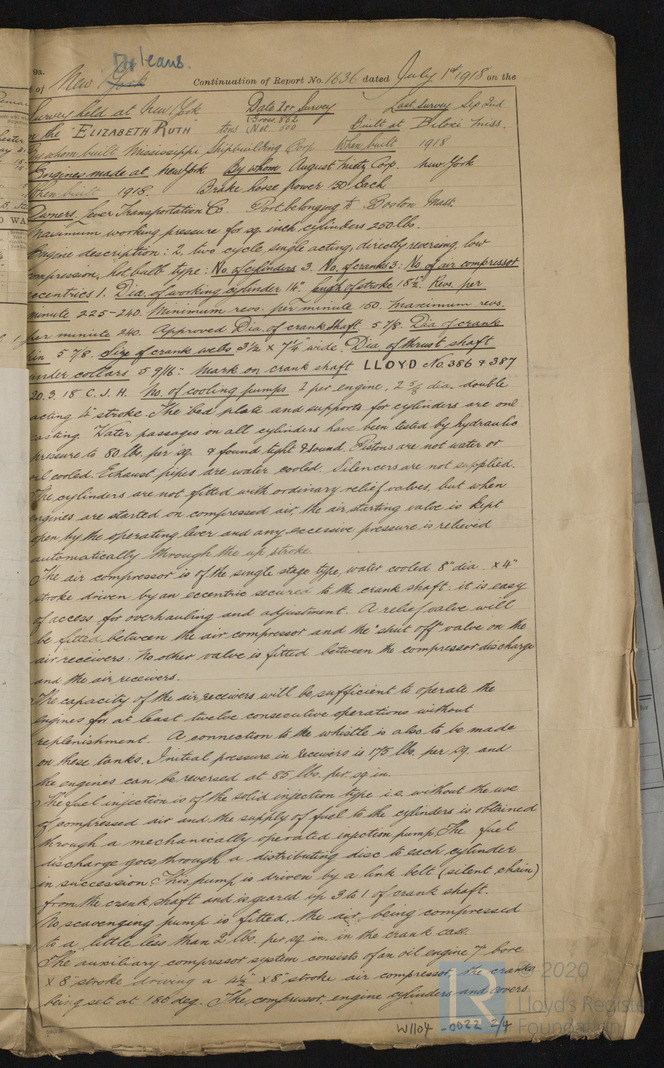 9a.
Orleans.
of New York Continuation of Report No. 1636 dated July 1st 1918 on the
Survey held at New York Date 1st Survey Last Survey Sep 2nd
on the "ELIZABETH RUTH" tons Gross 862 Net 500 Built at Biloxi Miss.
By whom built Mississippi Shipbuilding Corp When built 1918
Engines made at New York By whom August Mietz Corp. New York
When built 1918. Brake horse power 150 Each
Owners Transportation Co. Port belonging to Boston Mass
Maximum working pressure per sq inch cylinders 250 lbs.
Engine description: 2, two cycle single acting, directly reversing, low
compression, hot bulb type: No of cylinders 3. No. of cranks 3: No of air compressor
eccentrics 1. Dia. of working cylinder 16" Length of stroke 18½" Revs. per
minute 225-240. Minimum revs. per minute 150. Maximum revs.
per minute 240. Approved Dia. of crank shaft 5 7/8. Dia of crank
pin 5 7/8 Size of crank webs 3½ × 7¼" wide. Dia of thrust shaft
under collars 5 9/16": Mark on crank shaft LLOYD No. 386 & 387
20.3.18 C.J.H. No. of cooling pumps 1 per engine, 2 5/8 dia. double
acting 4" stroke. The bed plate and supports for cylinders are one
casting. Water passages on all cylinders have been tested by hydraulic
pressure to 80 lbs. per sq. & found tight & sound. Pistons are not water or
oil cooled. Exhaust pipes are water cooled. Silencers are not supplied.
The cylinders are not fitted with ordinary relief valves, but when
engines are started on compressed air, the air starting valve is kept
open by the operating lever and any excessive pressure is relieved
automatically through the up stroke.
The air compressor is of the single stage type, water cooled 8" dia. × 4"
stroke driven by an eccentric secured to the crank shaft: it is easy
of access for overhauling and adjustment. A relief valve will
be fitted between the air compressor and the "shut off" valve on the
air receivers. No other valve is fitted between the compressor discharge
and the air receivers.
The capacity of the air receivers will be sufficient to operate the
engines for at least twelve consecutive operations without
replenishment. A connection to the whistle is also to be made
on these tanks. Initial pressure in receivers is 175 lbs. per sq. and
the engines can be reversed at 85 lbs. per sq in.
The fuel injection is of the solid injection type i.e. without the use
of compressed air and the supply of fuel to the cylinders is obtained
through a mechanically operated injection pump. The fuel
discharge goes through a distributing disc to each cylinder
in succession. This pump is driven by a link belt (silent chain)
from the crank shaft and is geared up 3 to 1 of crank shaft.
No scavenging pump is fitted, the air, being compressed
to a little less than 2 lbs. per sq. in. in the crank case.
The auxiliary compressor system consists of an oil engine 7" bore
× 8" stroke driving a 4½" × 8" stroke air compressor, the cranks
being set at 180 deg. The compressor, engine cylinders and covers
© 2020
Lloyd's Register
Foundation
W1104-0022 2/4